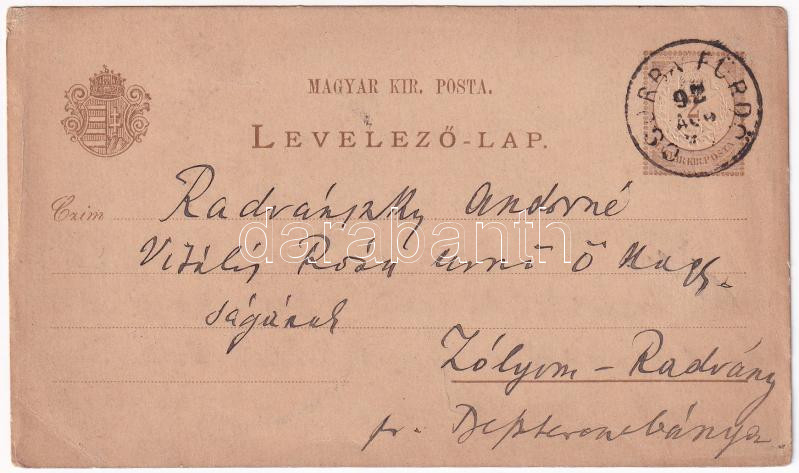 MAGYAR KIR. POSTA.
LEVELEZŐ-LAP.
CSORBA FÜRDŐ
92
AUG
2
KIR. POSTA
Czim
Radvánszky Andorné
Vitális Róza urnő Ő Nagy-
ságának
Zólyom-Radvány
pr. Beszterczebánya
darabanth